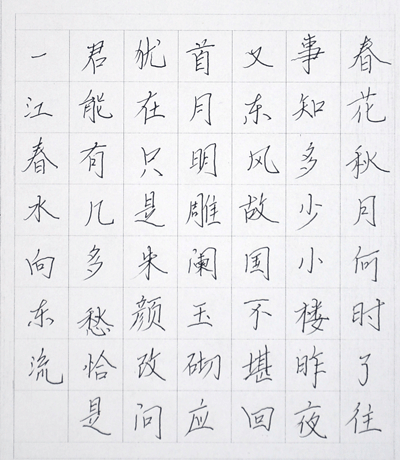 春花秋月何时了往
事知多少小楼昨夜
又东风故国不堪回
首月明雕阑玉砌应
犹在只是朱颜改问
君能有几多愁恰是
一江春水向东流